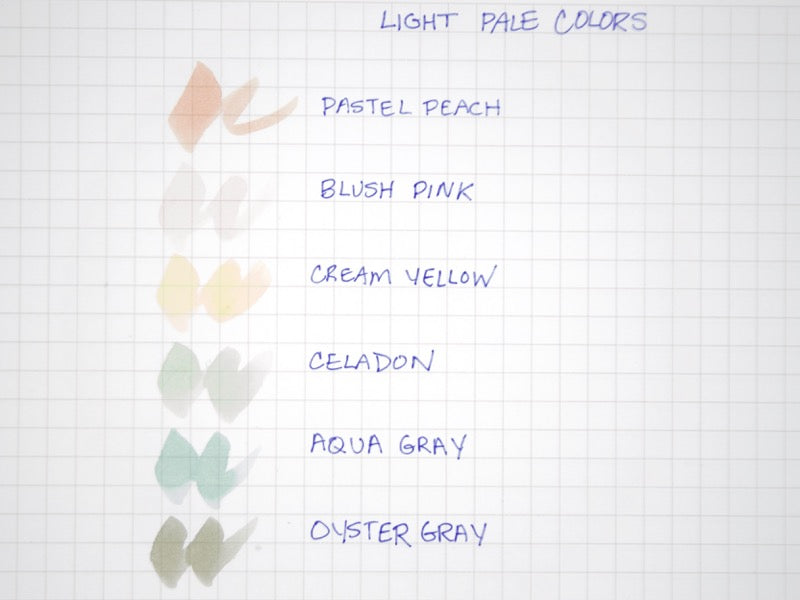 LIGHT PALE COLORS
PASTEL PEACH
BLUSH PINK
CREAM YELLOW
CELADON
AQUA GRAY
OYSTER GRAY